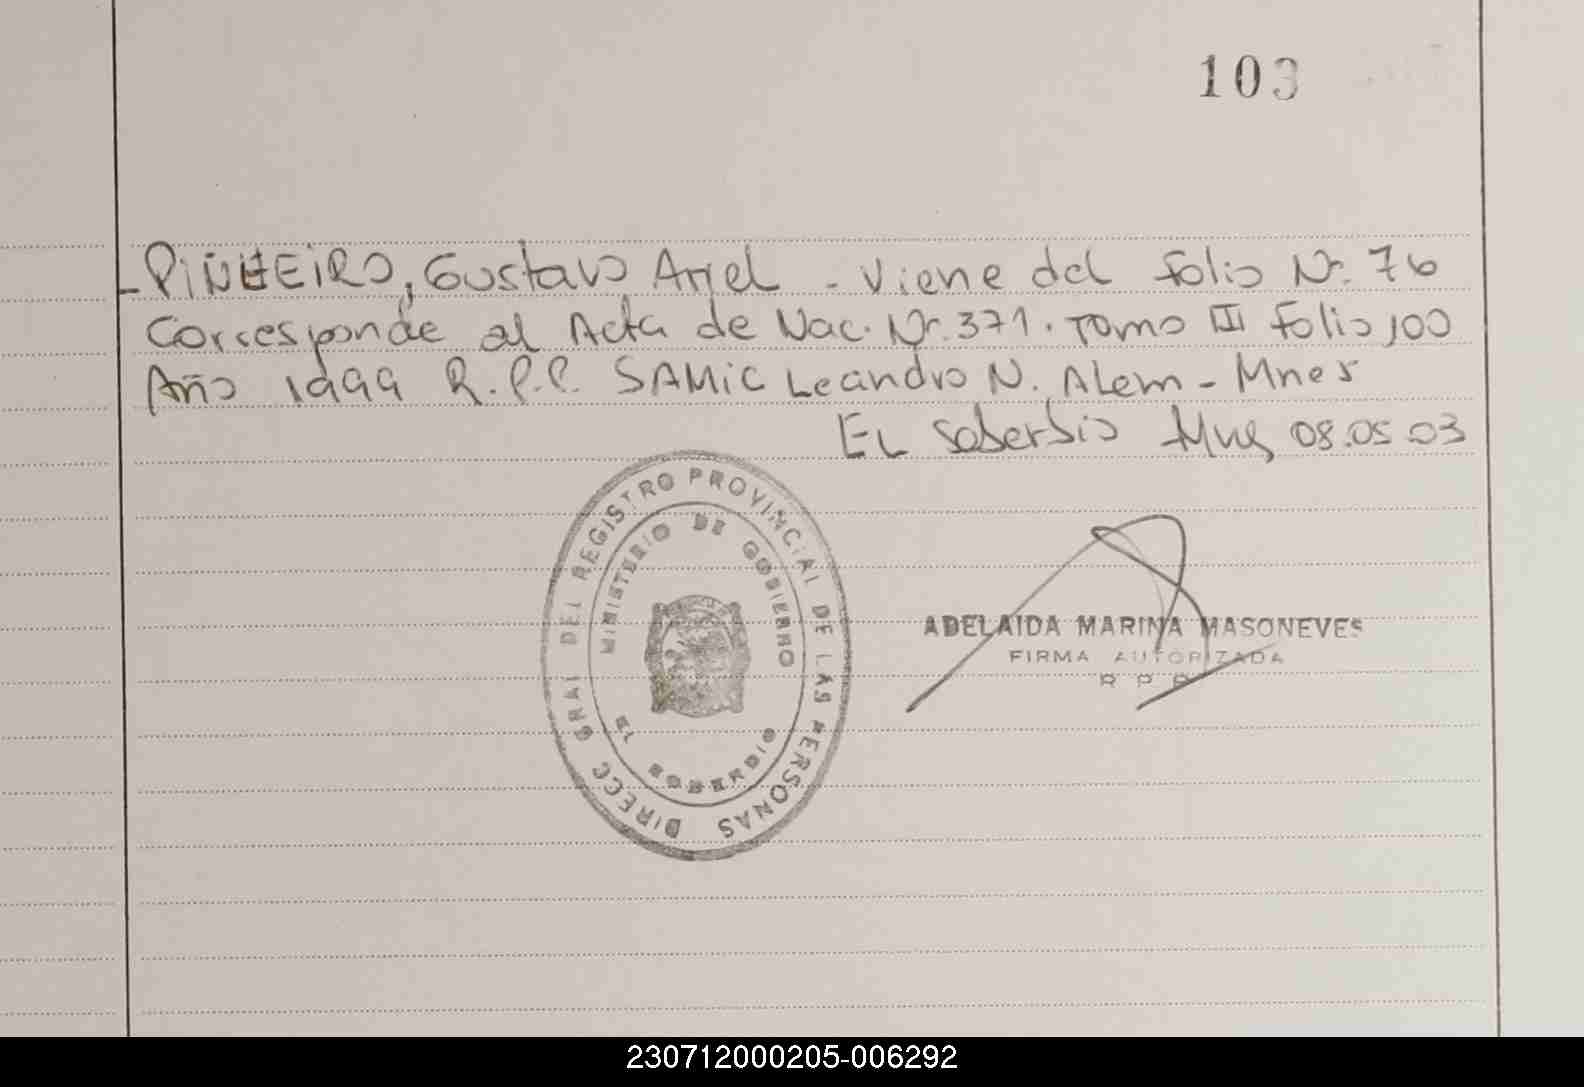 103
- PIÑHEIRO, Gustavo Ariel - Viene del folio Nº. 76
Corresponde al Acta de Nac. Nº. 371. Tomo III Folio 100
Año 1999 R.P.P. SAMIC Leandro N. Alem - Mnes
El Soberbio Mnes 08.05.03
DIRECC GRAL DEL REGISTRO PROVINCIAL DE LAS PERSONAS
MINISTERIO DE GOBIERNO
MISIONES
ADELAIDA MARINA MASONEVES
FIRMA AUTORIZADA
R P P
230712000205-006292